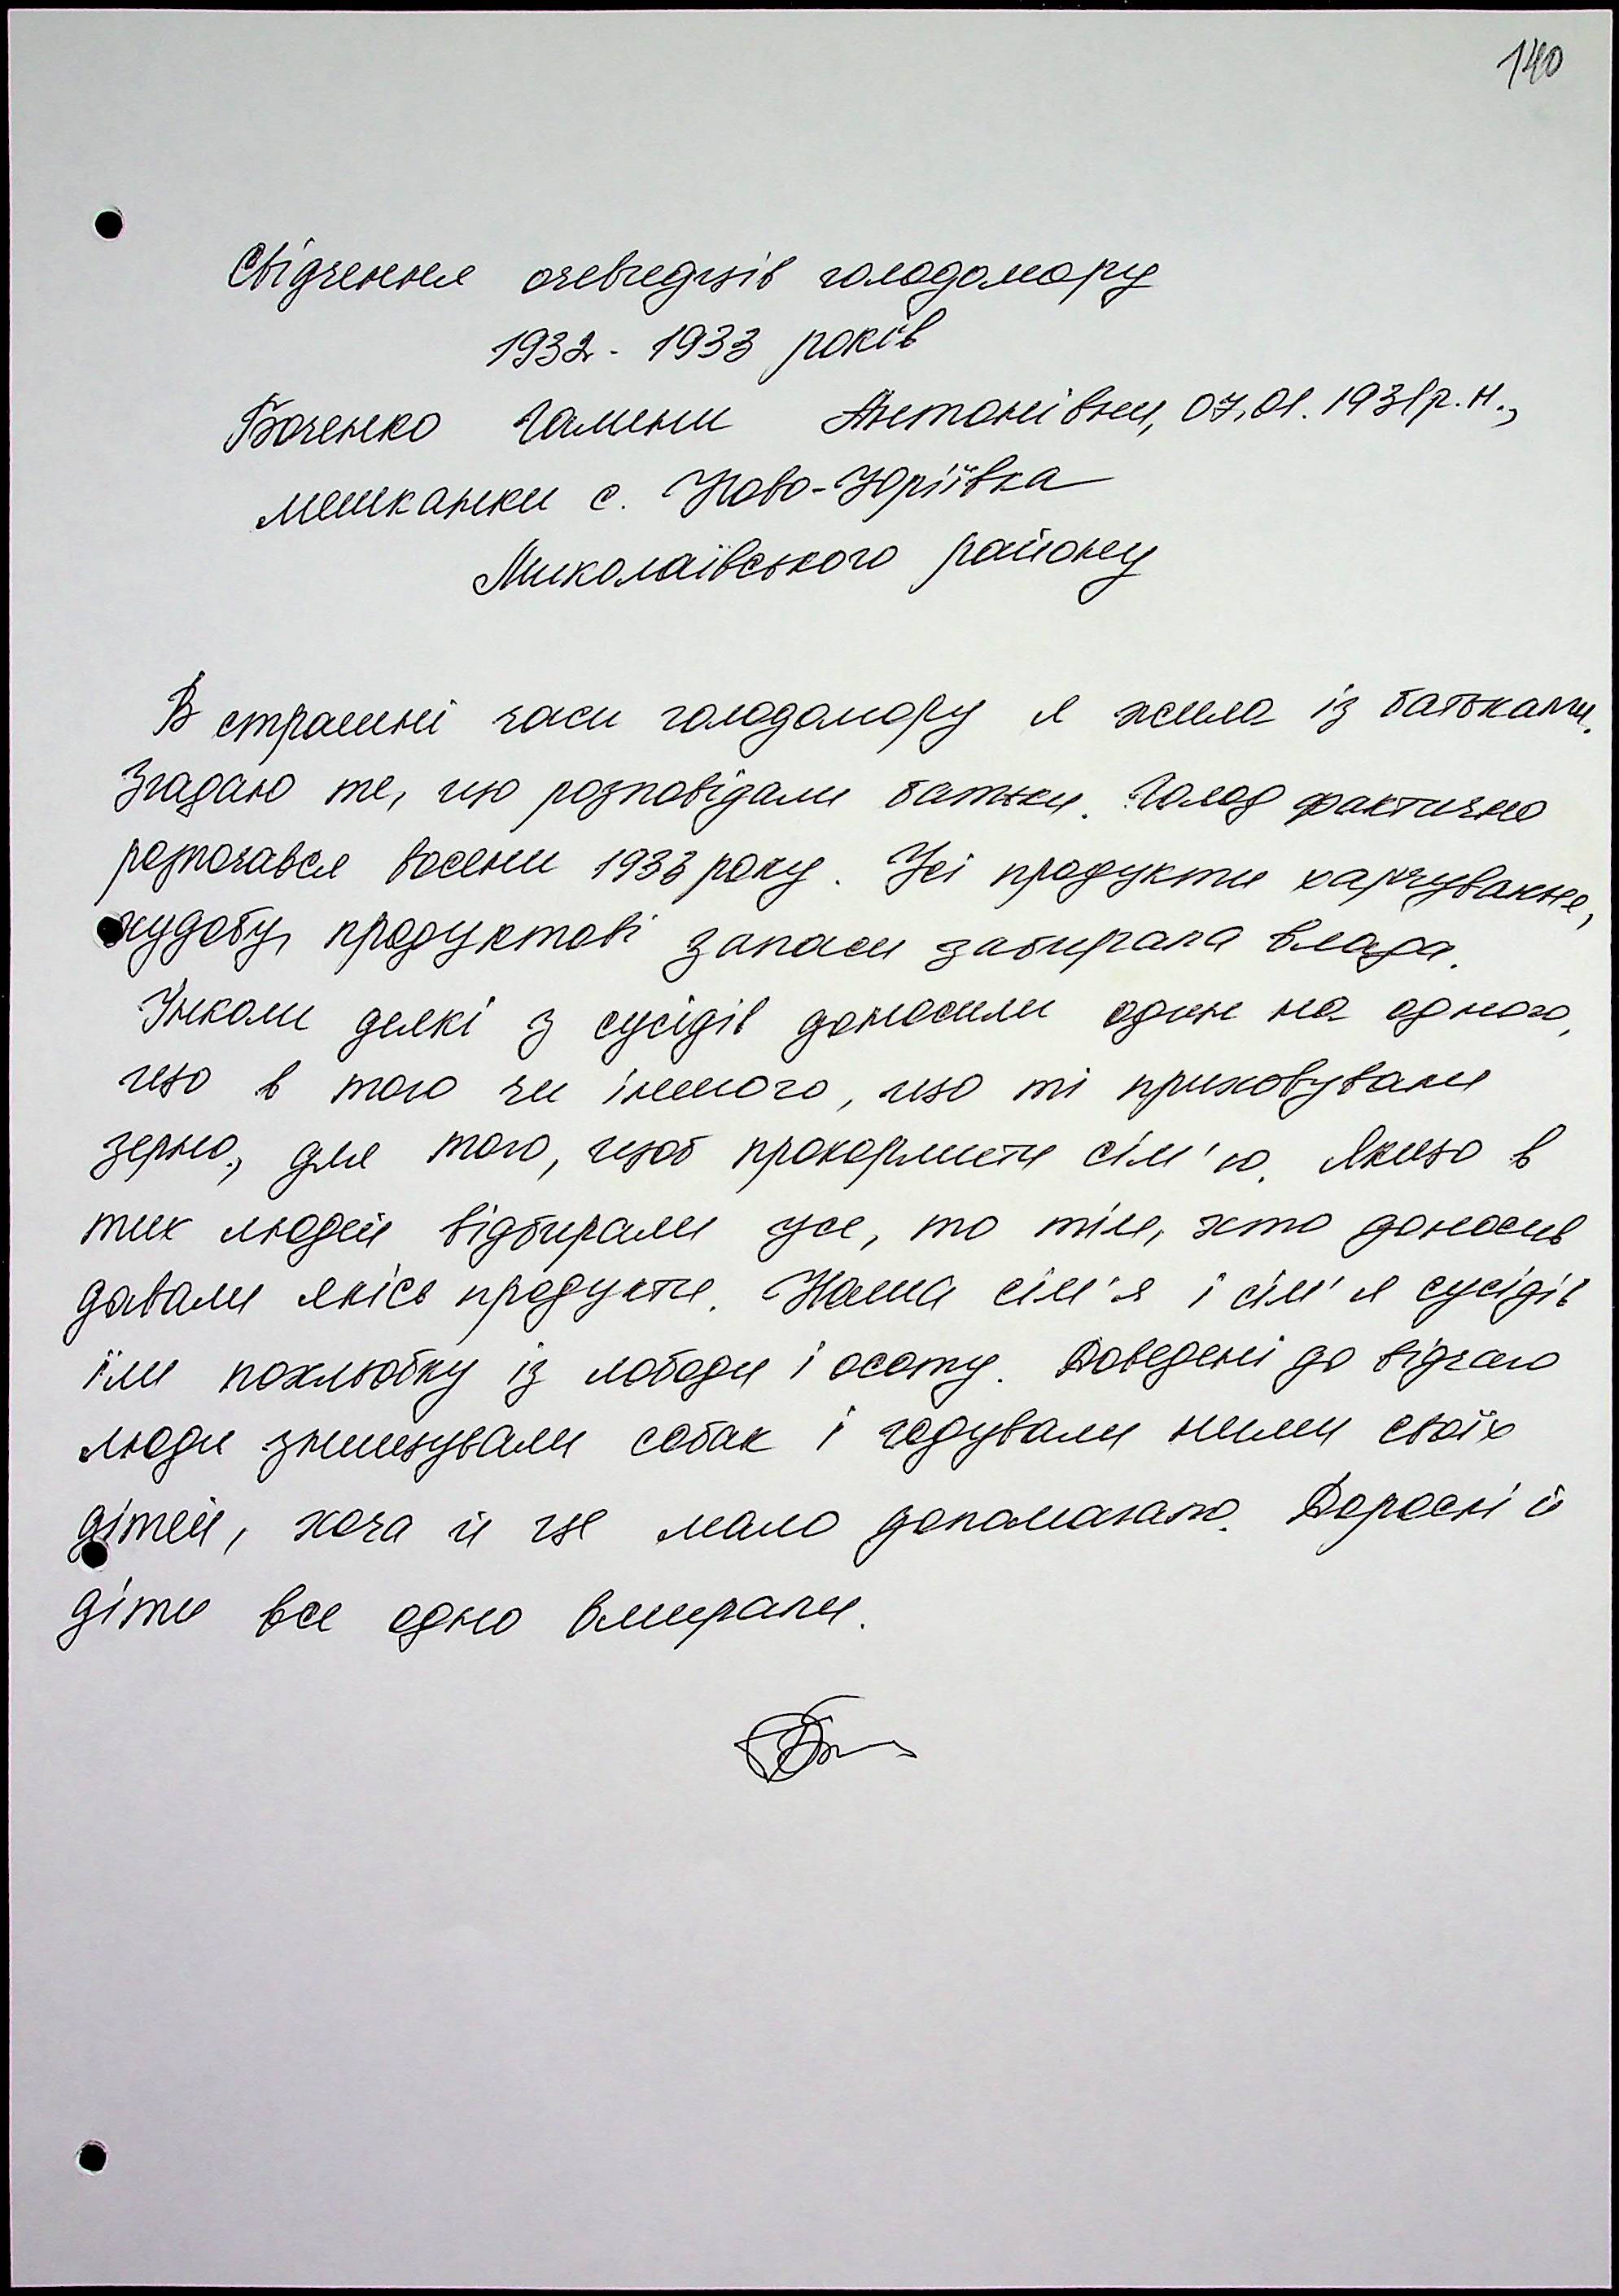 140
Свідчення очевидців голодомору
1932 - 1933 років
Боченко Галини Антонівни, 07.01.1931 р.н.,
мешканки с. Ново-Юріївка
Миколаївського району
В страшні часи голодомору я жила із батьками.
Згадаю те, що розповідали батьки. Голод фактично
розпочався восени 1933 року. Усі продукти харчування,
худобу, продуктові запаси забирала влада.
Інколи деякі з сусідів доносили один на одного,
що в того чи іншого, що ті приховували
зерно, для того, щоб прокормити сім'ю. Якщо в
тих людей відбирали усе, то тим, хто доносив
давали якісь продукти. Наша сім'я і сім'я сусідів
їли похльобку із лободи і осоту. Доведені до відчаю
люди знищували собак і годували ними своїх
дітей, хоча й це мало допомагало. Дорослі й
діти все одно вмирали.